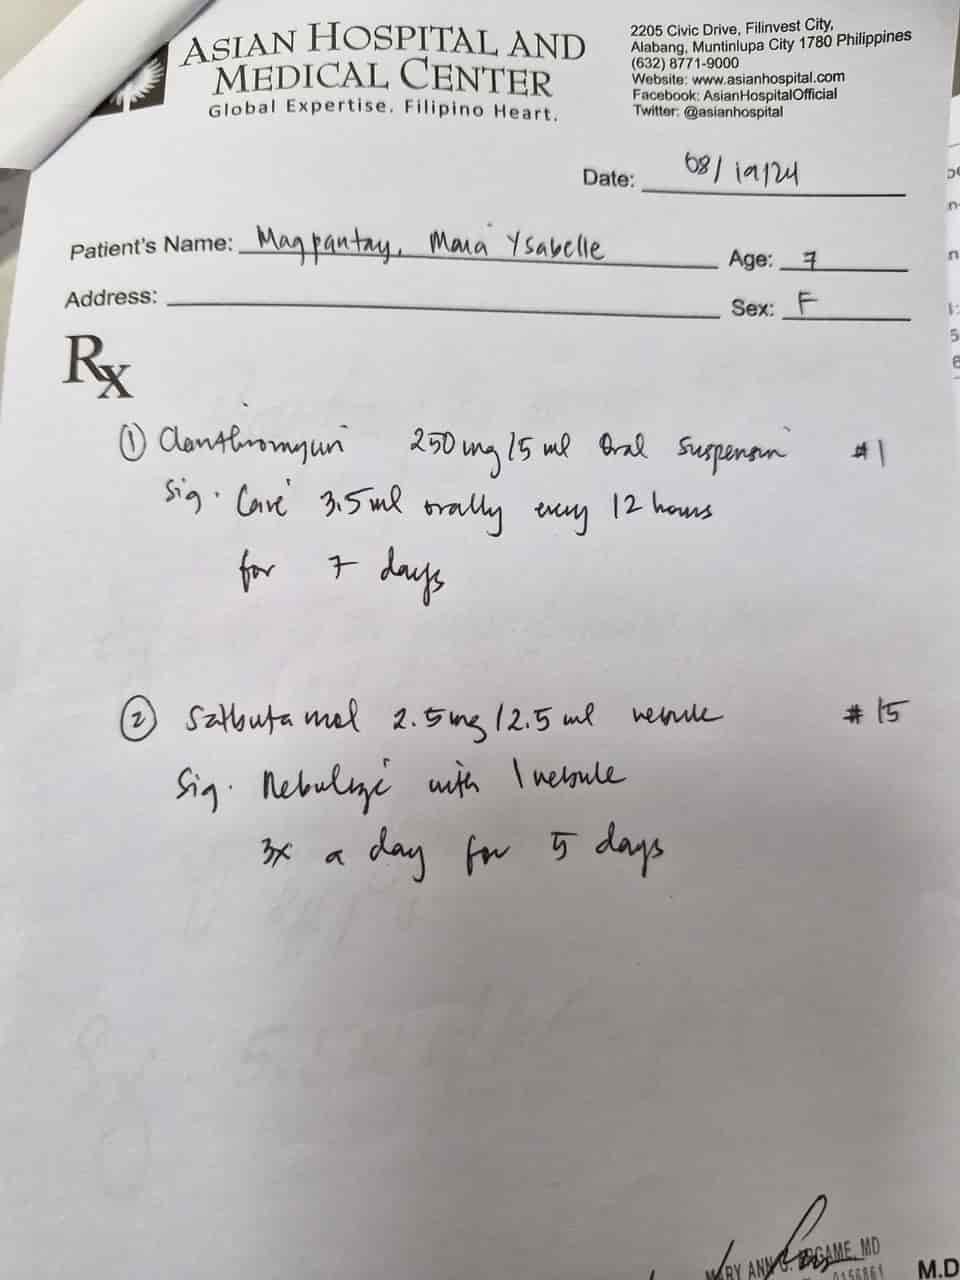 ASIAN HOSPITAL AND
MEDICAL CENTER
Global Expertise. Filipino Heart.
2205 Civic Drive, Filinvest City,
Alabang, Muntinlupa City 1780 Philippines
(632) 8771-9000
Website: www.asianhospital.com
Facebook: AsianHospitalOfficial
Twitter: @asianhospital
Date: 08/19/24
Patient's Name: Magpantay, Maria Ysabelle
Age: 7
Address:
Sex: F
Rx
① Clarithromycin 250mg/5 ml Oral Suspension #1
Sig. Give 3.5ml orally every 12 hours
for 7 days
② Salbutamol 2.5mg/2.5 ml nebule #15
Sig. Nebulize with 1 nebule
3x a day for 5 days
MARY ANN MD
0156861 M.D